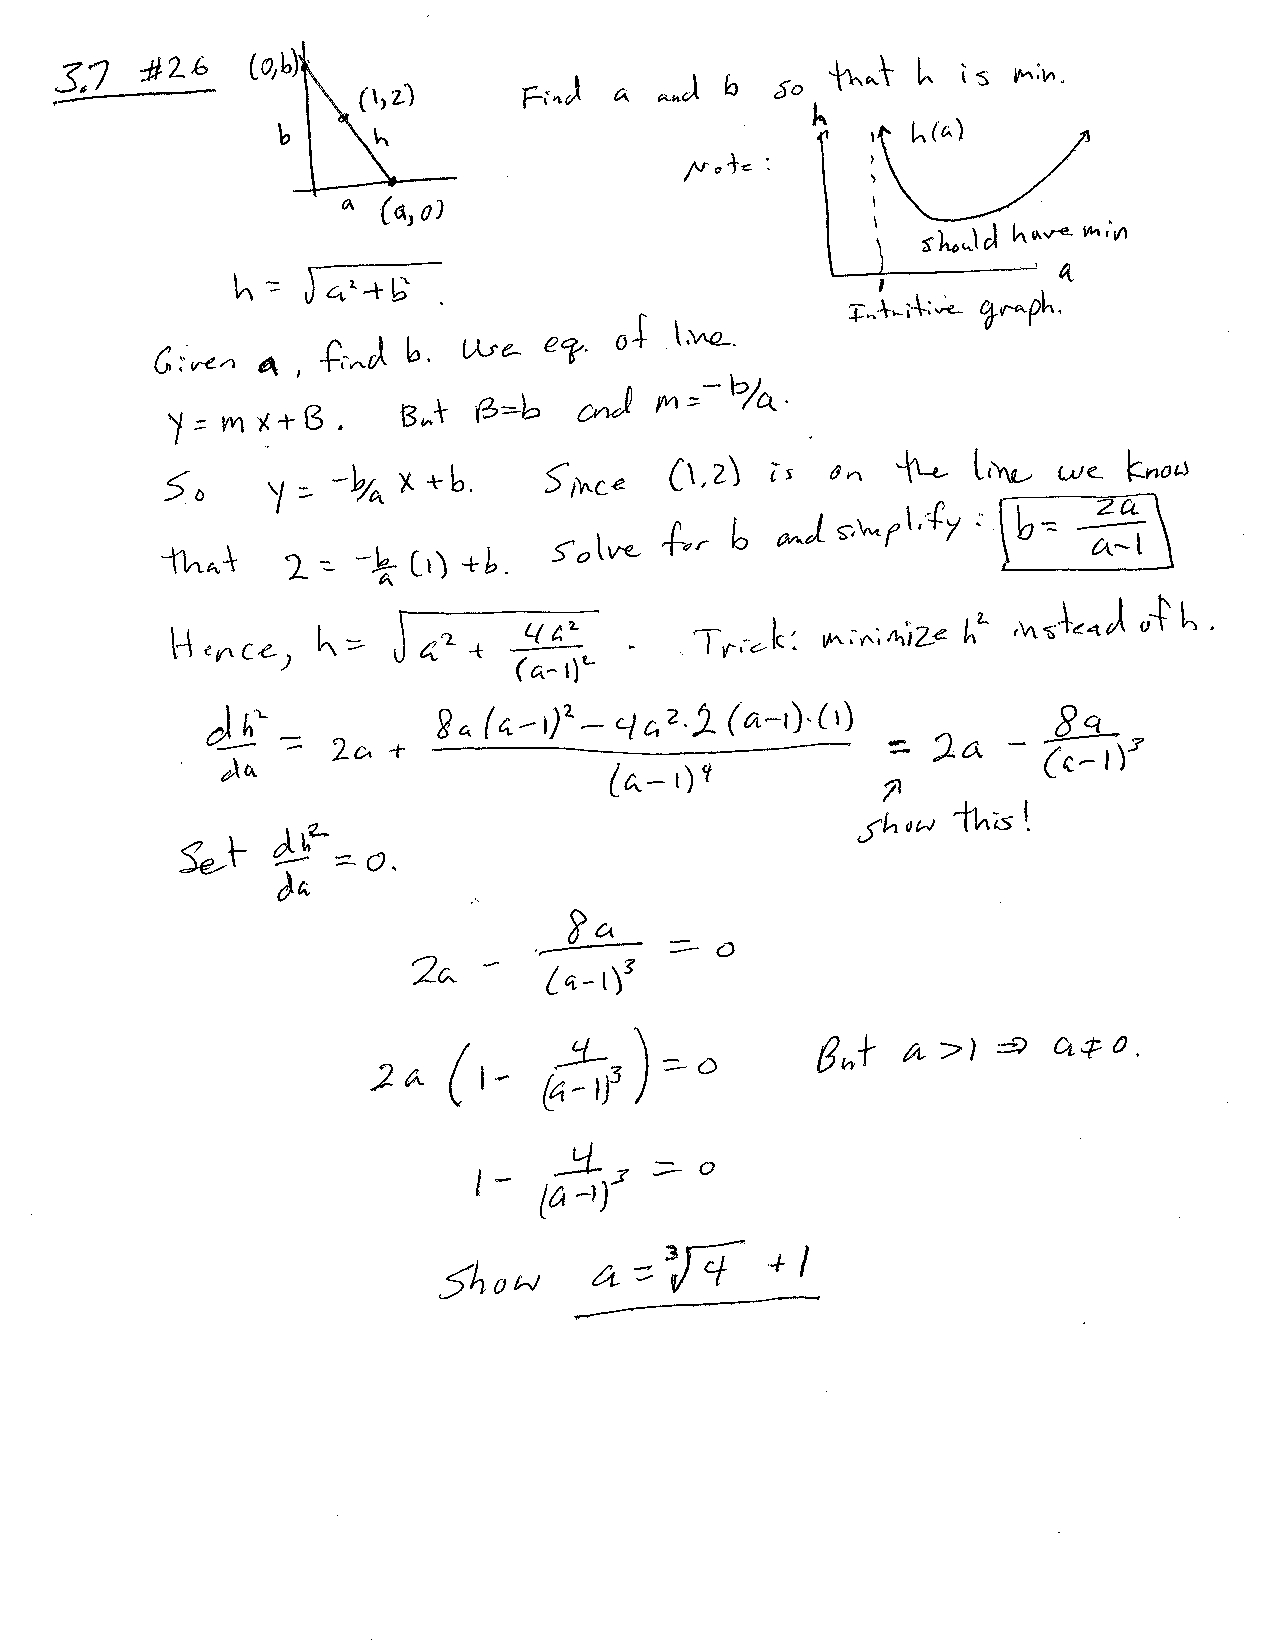 3.7 #26 (0,b) (1,2) Find a and b so that h is min.
b h
a (a,0)
Note: h h(a)
should have min
a
Intuitive graph.
h = √(a² + b²).
Given a, find b. Use eq. of line.
y = mx + B. But B=b and m = -b/a.
So y = -b/a x + b. Since (1,2) is on the line we know
that 2 = -b/a (1) + b. Solve for b and simplify: b = 2a/(a-1)
Hence, h = √(a² + 4a²/(a-1)²). Trick: minimize h² instead of h.
dh²/da = 2a + (8a(a-1)² - 4a²·2(a-1)·(1))/(a-1)⁴ = 2a - 8a/(a-1)³
show this!
Set dh²/da = 0.
2a - 8a/(a-1)³ = 0
2a (1 - 4/(a-1)³) = 0 But a > 1 ⇒ a ≠ 0.
1 - 4/(a-1)³ = 0
Show a = ³√4 + 1